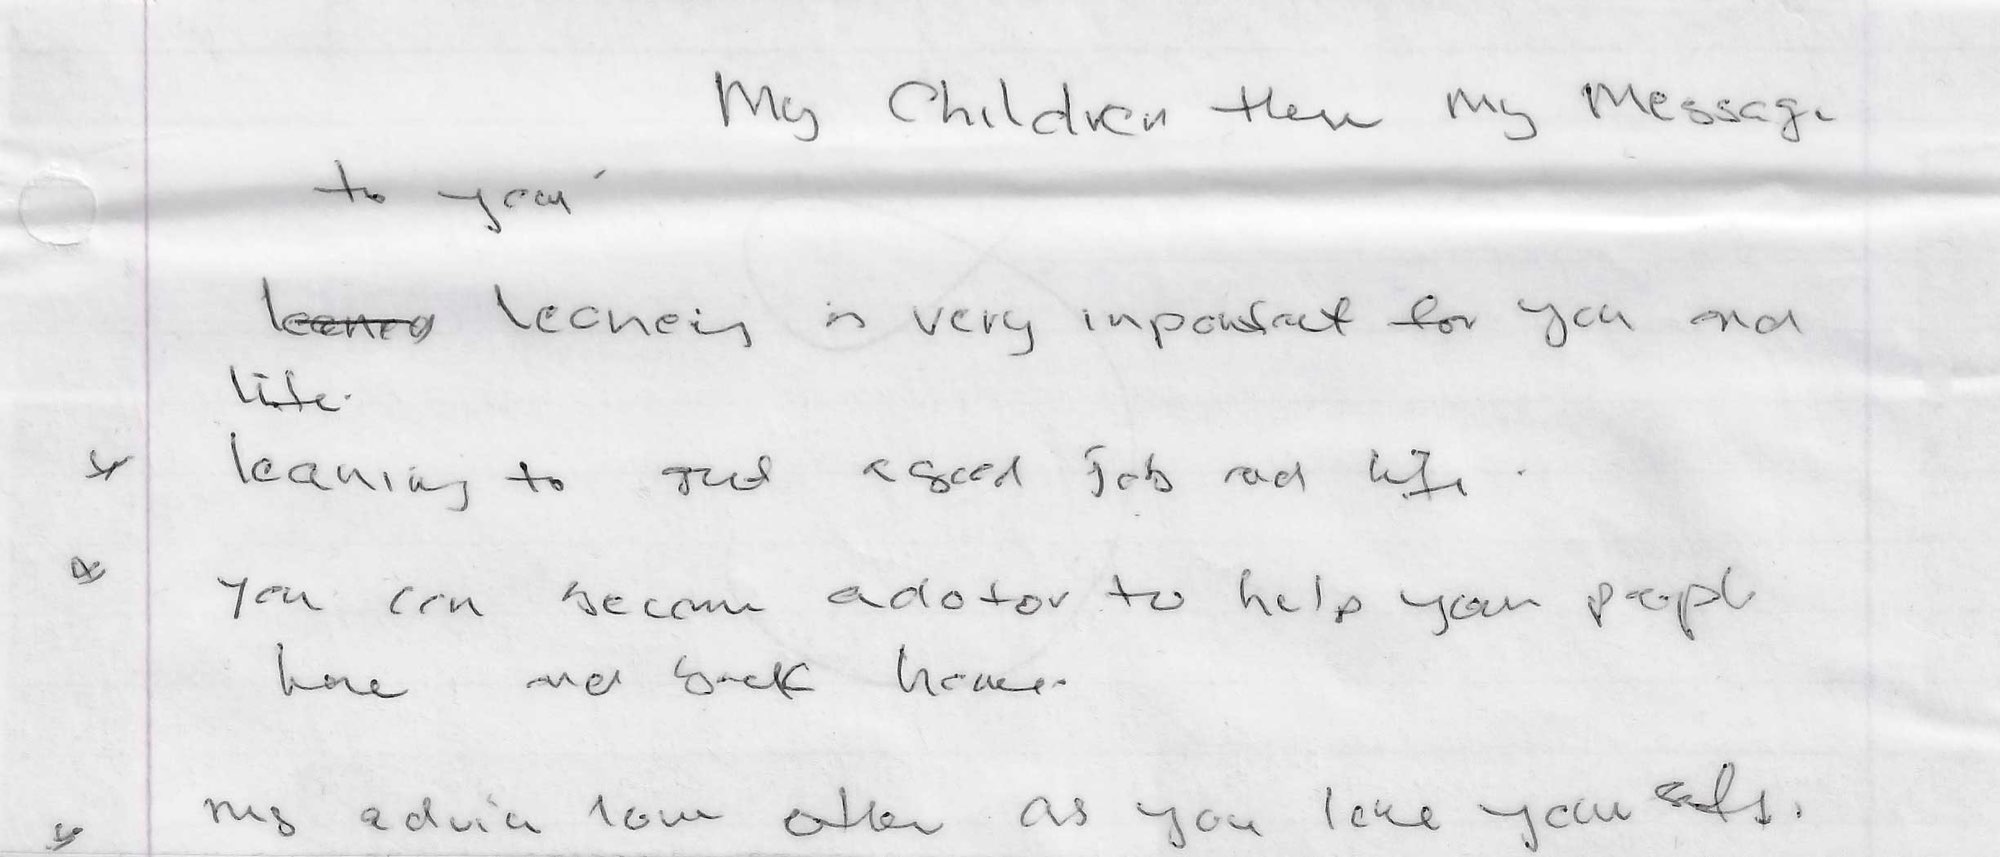 My Children then My Message
to you
learneing is very inportact for you and
life.
* leaning to get a good job and life.
* you can become a dotor to help your peopl
here and back home.
* my advice love other as you love your selfs.